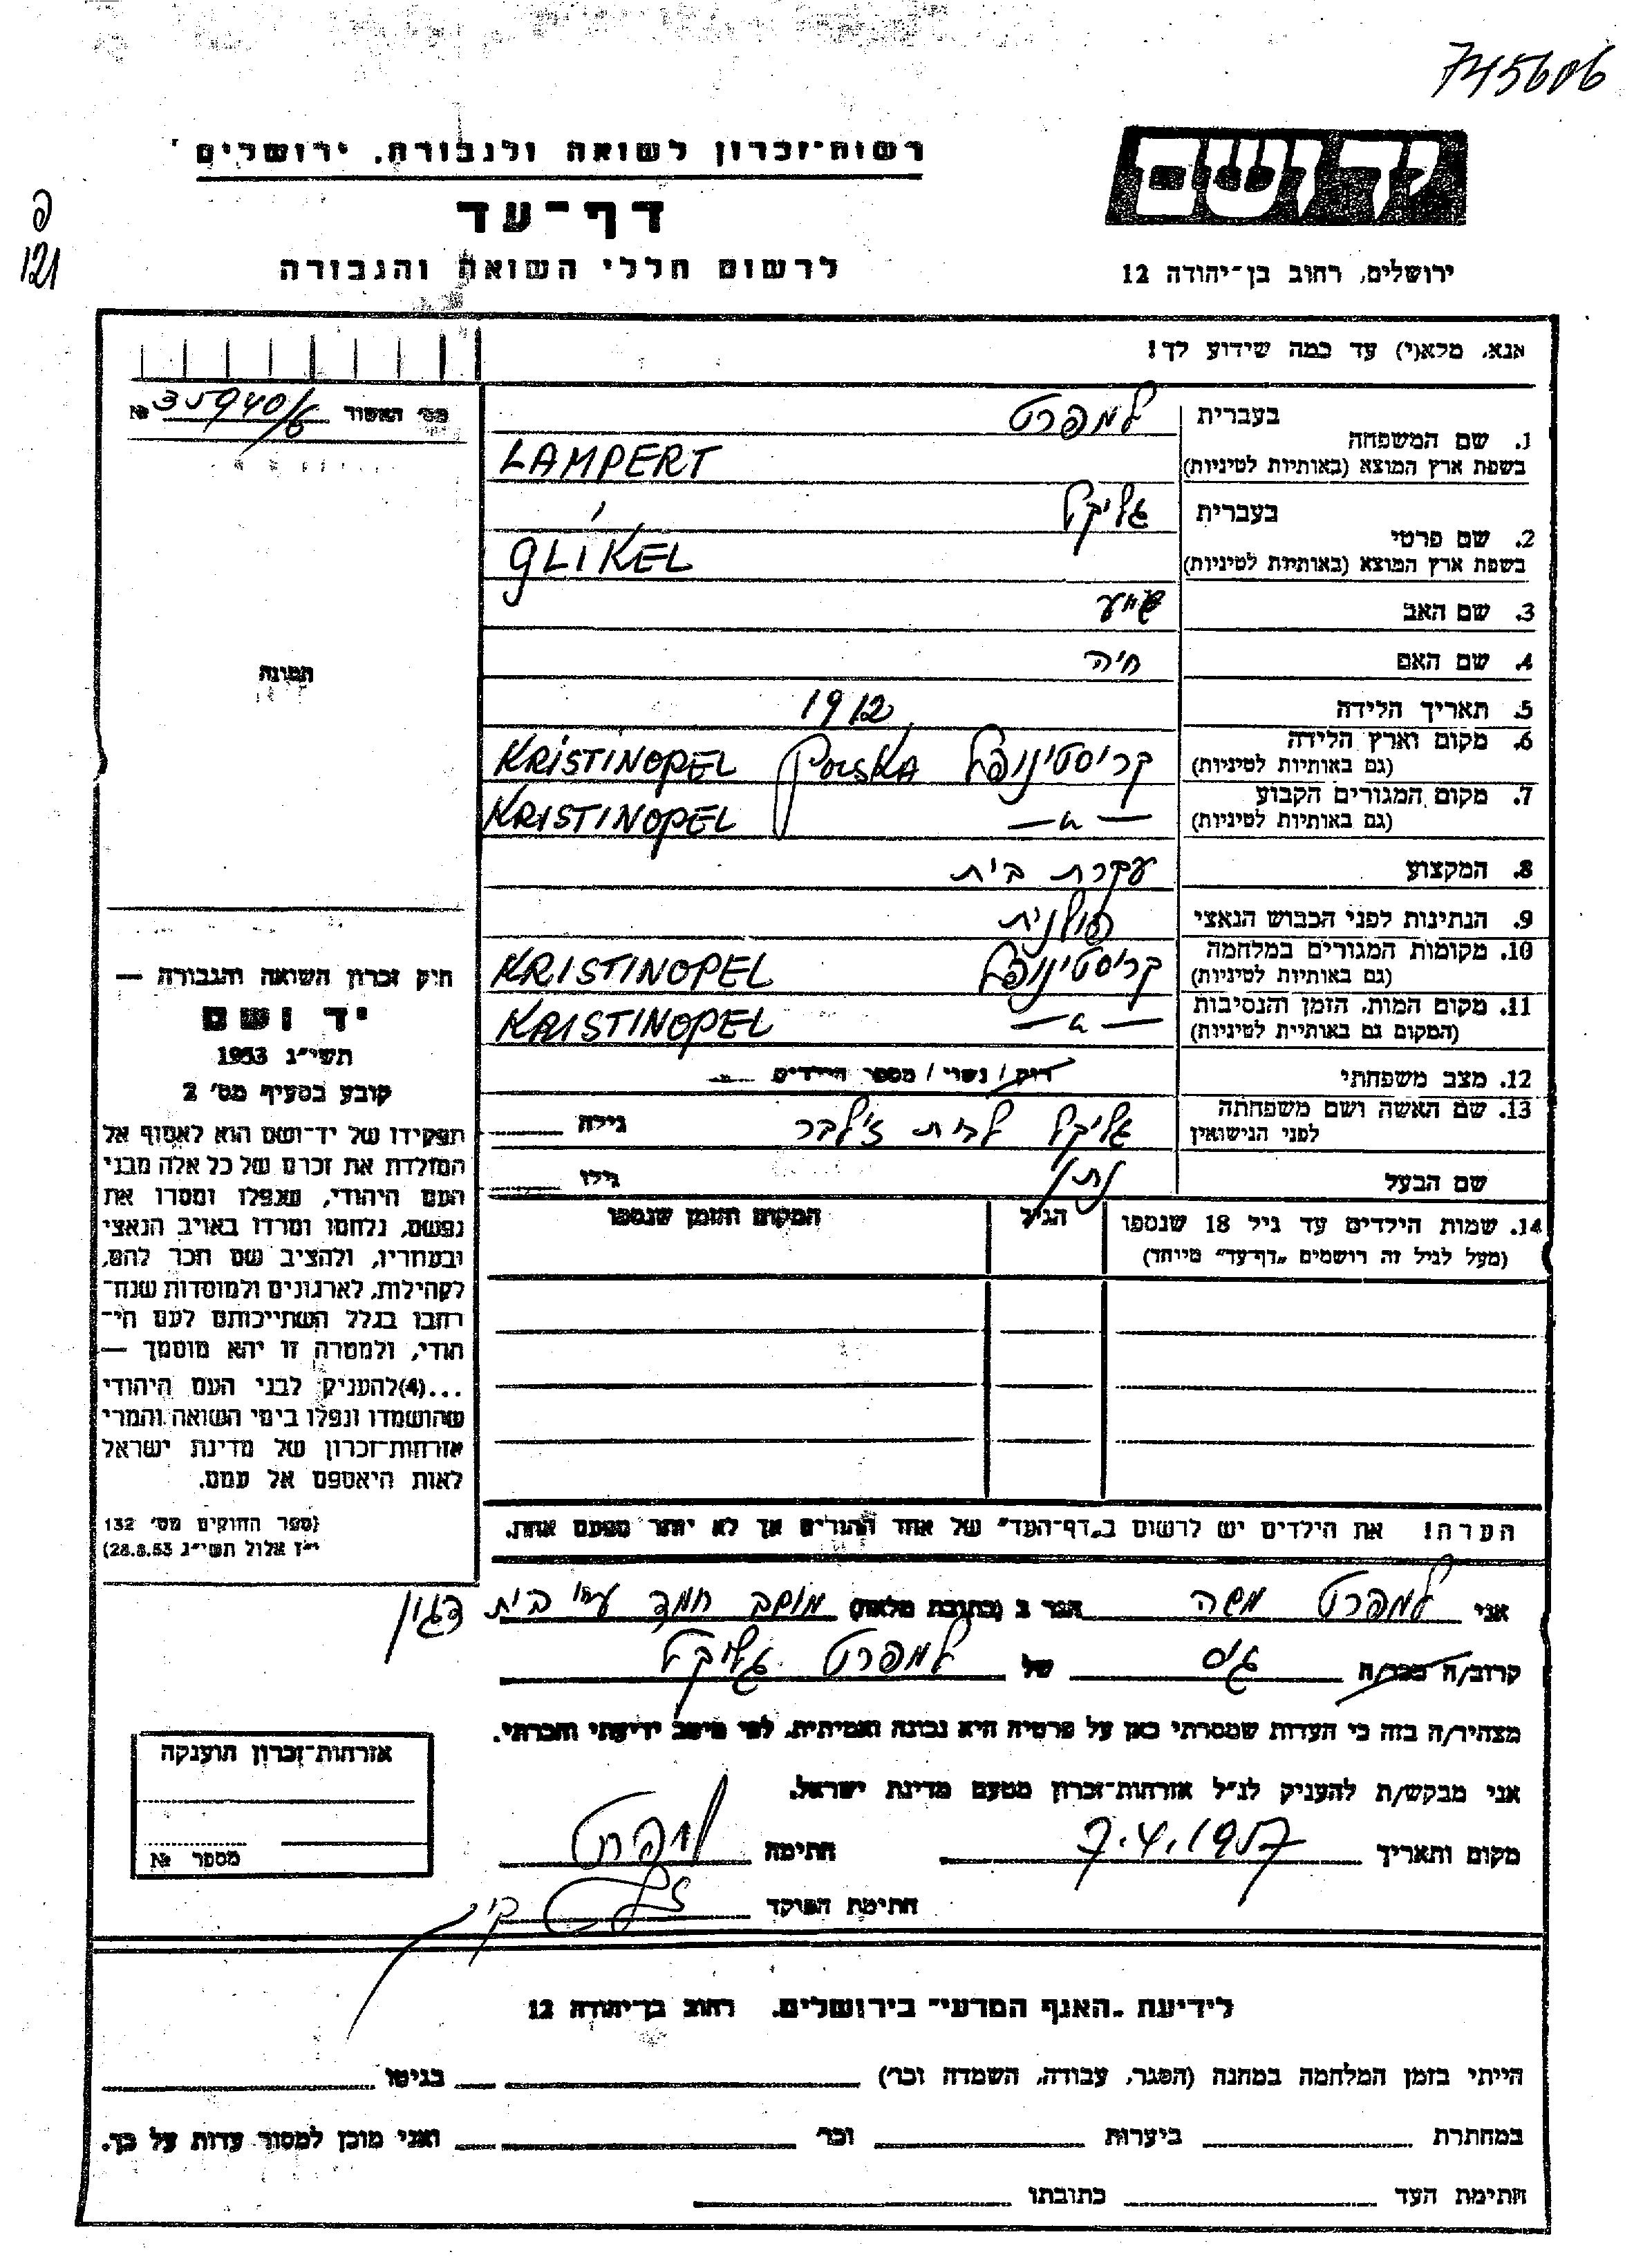 745606
ידושם
רשות־זכרון לשואה ולגבורה, ירושלים
דף־עד
לרשום חללי השואה והגבורה
ירושלים, רחוב בן־יהודה 12
פ
121
אנא, מלא(י) עד כמה שידוע לך!
מס׳ האשור № 35940/6
1. שם המשפחה בעברית למפרט
בשפת ארץ המוצא (באותיות לטיניות) LAMPERT
2. שם פרטי בעברית גליקל
בשפת ארץ המוצא (באותיות לטיניות) GLIKEL
3. שם האב שייע
4. שם האם חיה
תמונה
5. תאריך הלידה 1912
6. מקום וארץ הלידה (גם באותיות לטיניות) קריסטינופל POLSKA KRISTINOPEL
7. מקום המגורים הקבוע (גם באותיות לטיניות) — " — KRISTINOPEL
8. המקצוע עקרת בית
9. הנתינות לפני הכבוש הנאצי פולנית
10. מקומות המגורים במלחמה (גם באותיות לטיניות) קריסטינופל KRISTINOPEL
11. מקום המות, הזמן והנסיבות (המקום גם באותיות לטיניות) — " — KRISTINOPEL
12. מצב משפחתי רווק / נשוי / מספר הילדים
13. שם האשה ושם משפחתה לפני הנישואין גליקל לבית זילבר גילה
שם הבעל נתן גילו
14. שמות הילדים עד גיל 18 שנספו הגיל המקום והזמן שנספו
(מעל לגיל זה רושמים „דף־עד" מיוחד)
חוק זכרון השואה והגבורה —
יד ושם
תשי״ג 1953
קובע בסעיף מס׳ 2
תפקידו של יד־ושם הוא לאסוף אל
המולדת את זכרם של כל אלה מבני
העם היהודי, שנפלו ומסרו את
נפשם, נלחמו ומרדו באויב הנאצי
ובעוזריו, ולהציב שם וזכר להם,
לקהילות, לארגונים ולמוסדות שנח־
רבו בגלל השתייכותם לעם הי־
הודי, ולמטרה זו יהא מוסמך —
...(4)להעניק לבני העם היהודי
שהושמדו ונפלו בימי השואה והמרי
אזרחות־זכרון של מדינת ישראל
לאות היאספם אל עמם.
(ספר החוקים מס׳ 132
י״ז אלול תשי״ג 28.8.53)
הערה! את הילדים יש לרשום ב„דף־העד" של אחד ההורים אך לא יותר מפעם אחת.
אני למפרט משה הגר ב (כתובת מלאה) מושב חמד ע״י בית דגון
קרוב/ה מכר/ה גיס של למפרט גליקל
מצהיר/ה בזה כי העדות שמסרתי כאן על פרטיה היא נכונה ואמיתית, לפי מיטב ידיעתי והכרתי.
אני מבקש/ת להעניק לנ״ל אזרחות־זכרון מטעם מדינת ישראל.
מקום ותאריך 7.4.1957 חתימה למפרט
חתימת הפוקד
אזרחות־זכרון הוענקה
מספר №
לידיעת „האגף המדעי" בירושלים, רחוב בן־יהודה 12
הייתי בזמן המלחמה במחנה (הסגר, עבודה, השמדה וכו׳) בגיטו
במחתרת ביערות וכו׳ ואני מוכן למסור עדות על כך.
חתימת העד כתובתו